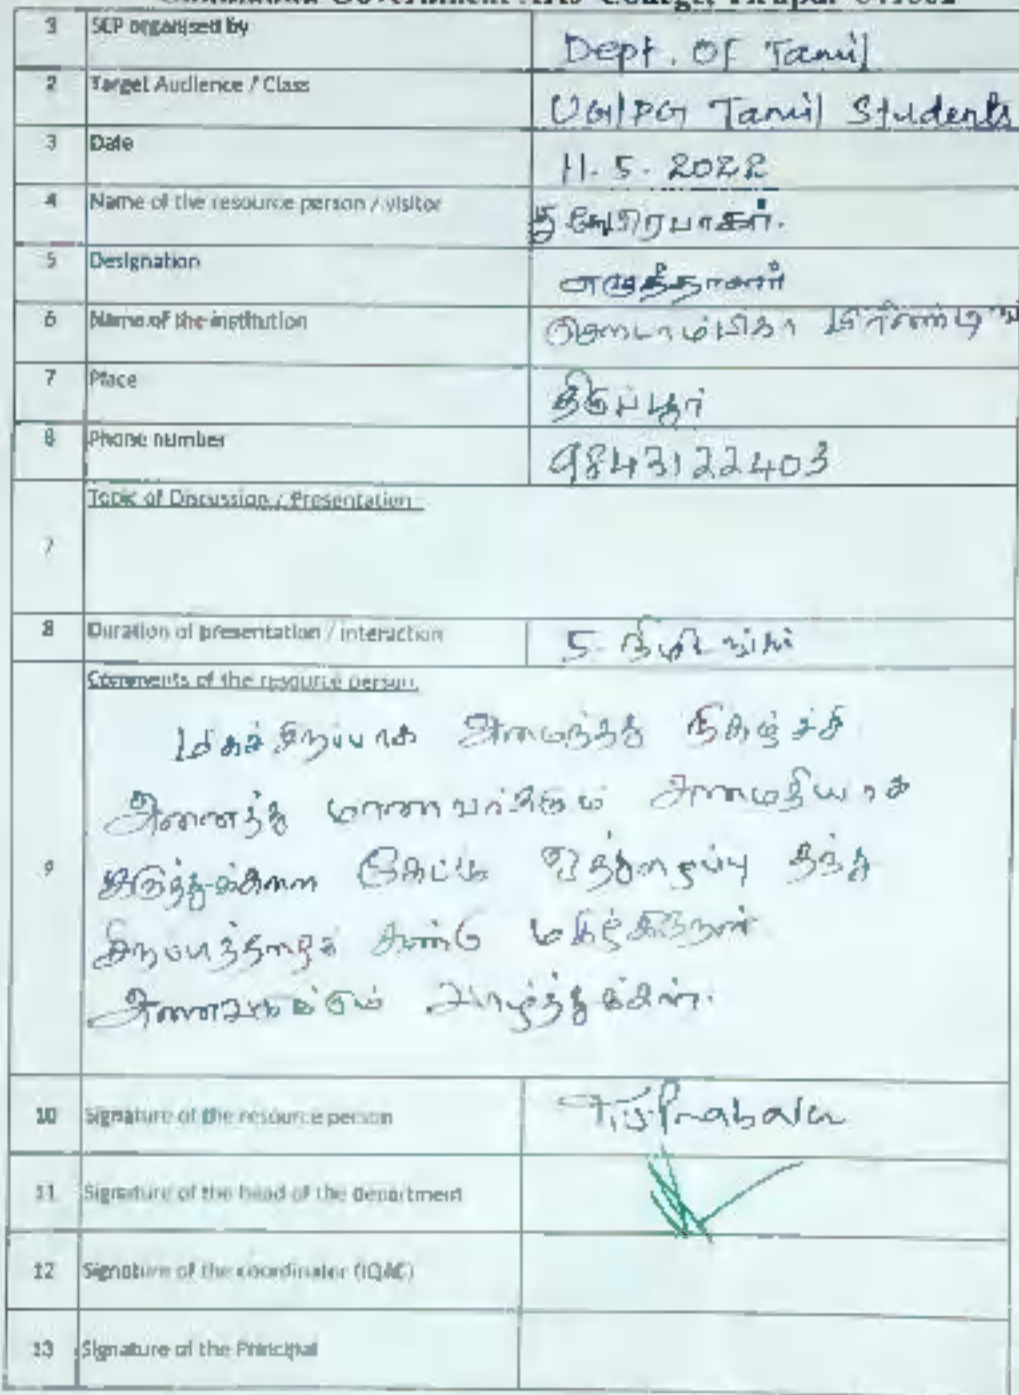 Government Arts College, Tirupur
1 SCP organised by Dept. Of Tamil
2 Target Audience / Class UG/PG Tamil Students
3 Date 11.5.2022
4 Name of the resource person / visitor
5 Designation எழுத்தாளர்
6 Name of the institution
7 Place திருப்பூர்
8 Phone number 9843122403
Topic of Discussion / Presentation
7
8 Duration of presentation / interaction 5 நிமிடங்கள்
Comments of the resource person
மிகச் சிறப்பாக அமைந்தது நிகழ்ச்சி.
அனைத்து மாணவர்களும் அமைதியாக
9 கருத்துக்களை கேட்டு ஒத்துழைப்பு தந்த
கண்டு மகிழ்கிறேன்.
அனைவருக்கும் வாழ்த்துக்கள்.
10 Signature of the resource person T.S.Prabakar
11 Signature of the head of the department
12 Signature of the coordinator (IQAC)
13 Signature of the Principal